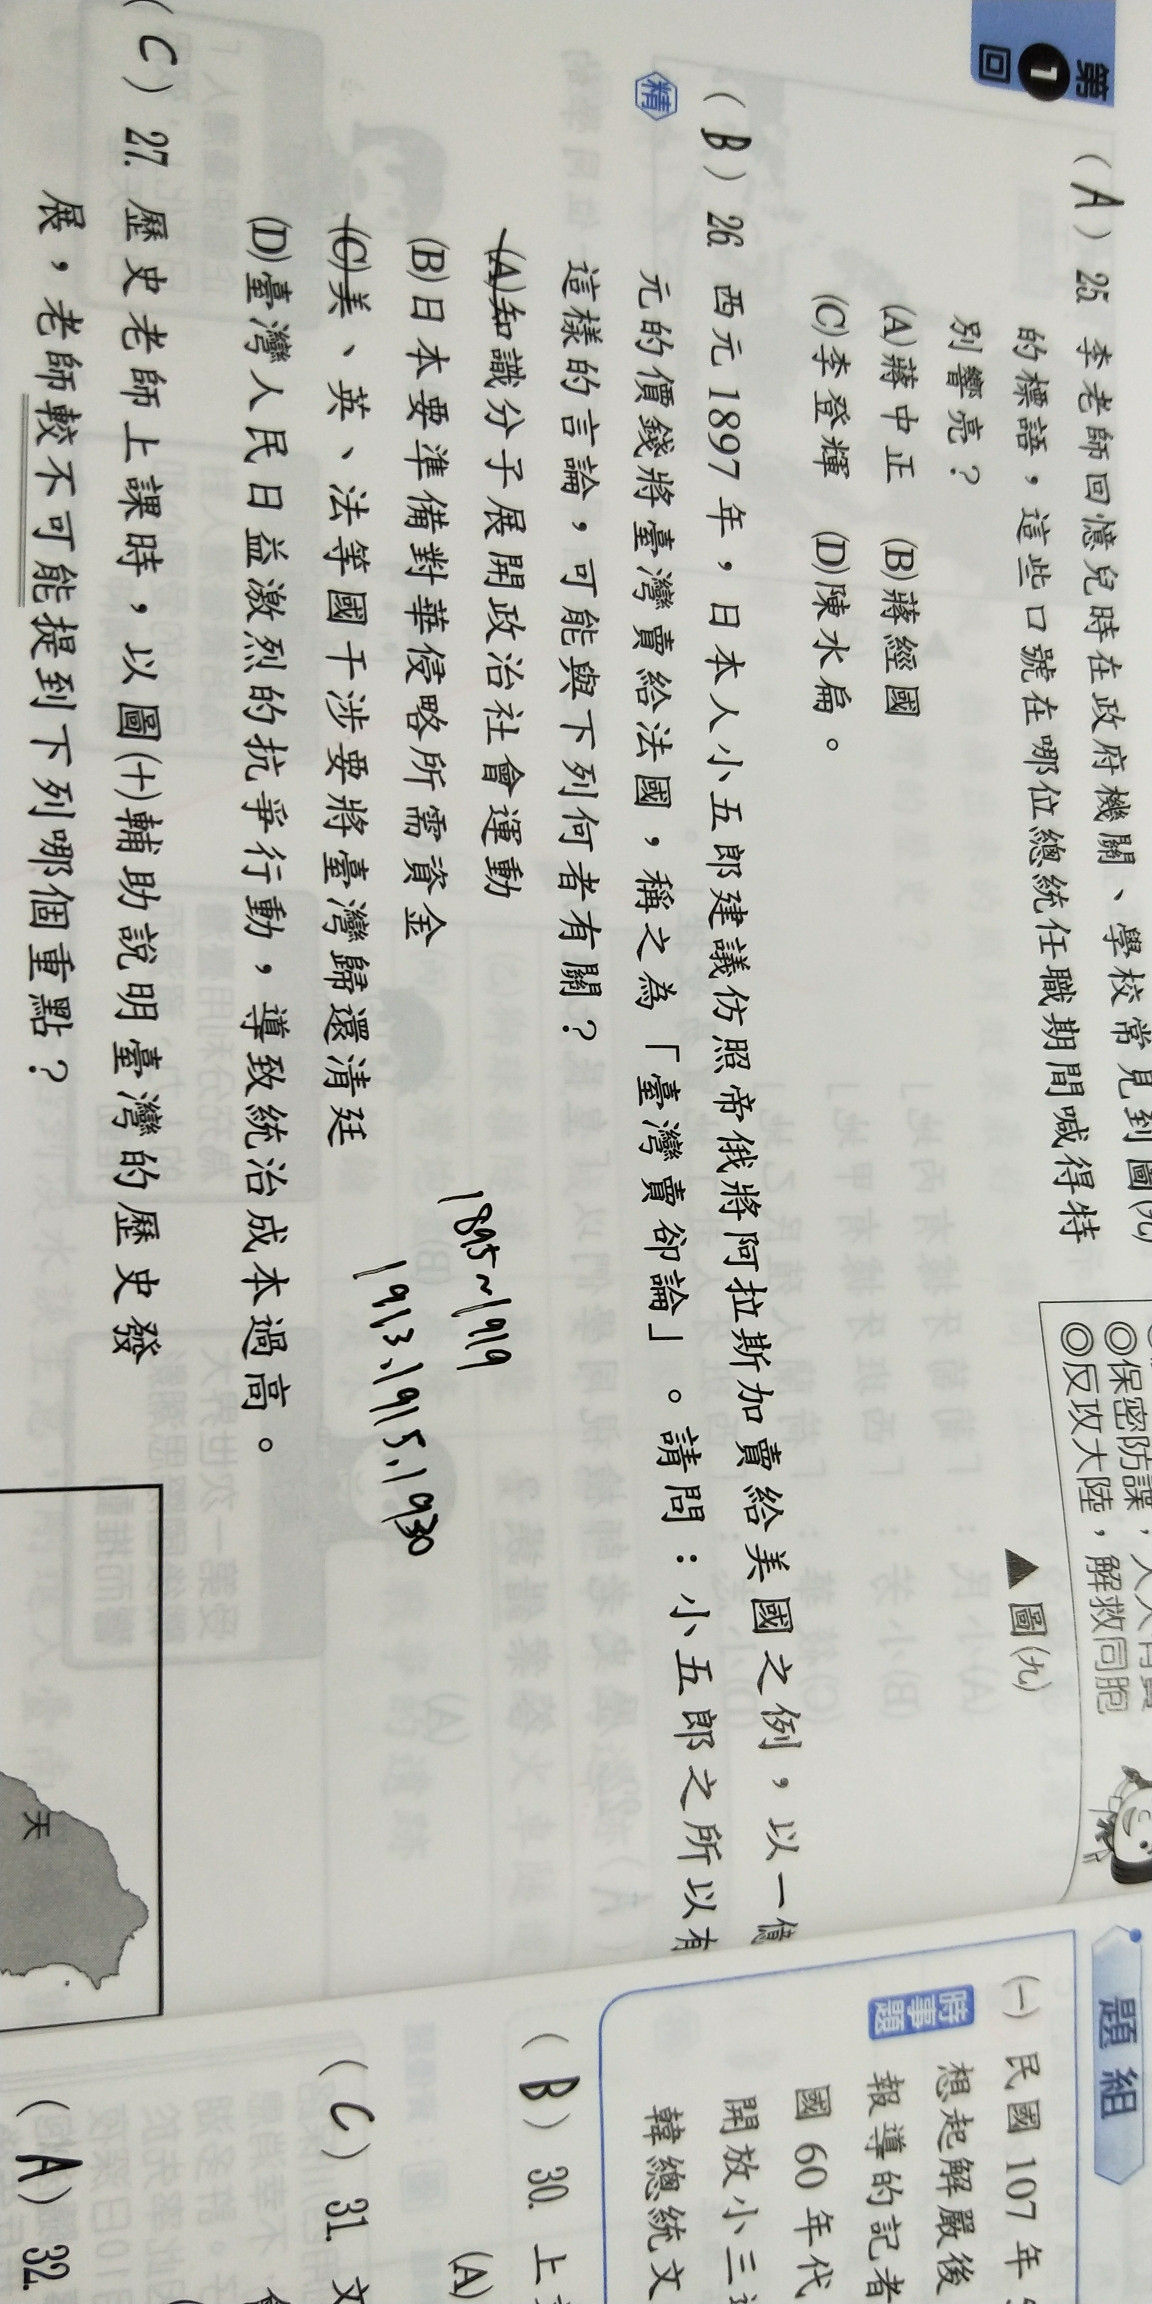 第1回
(A) 25. 李老師回憶兒時在政府機關、學校常見到圖(九)
的標語，這些口號在哪位總統任職期間喊得特
別響亮？
(A)蔣中正 (B)蔣經國
(C)李登輝 (D)陳水扁。
◎保密防諜，人人有責
◎反攻大陸，解救同胞
▲圖(九)
精
(B) 26. 西元 1897 年，日本人小五郎建議仿照帝俄將阿拉斯加賣給美國之例，以一億
元的價錢將臺灣賣給法國，稱之為「臺灣賣卻論」。請問：小五郎之所以有
這樣的言論，可能與下列何者有關？
(A)知識分子展開政治社會運動
(B)日本要準備對華侵略所需資金
(C)美、英、法等國干涉要將臺灣歸還清廷
(D)臺灣人民日益激烈的抗爭行動，導致統治成本過高。
1895~1919
1913、1915、1930
(C) 27. 歷史老師上課時，以圖(十)輔助說明臺灣的歷史發
展，老師較不可能提到下列哪個重點？
天
題組
(一) 民國 107 年
時事題
想起解嚴後
報導的記者
國 60 年代
開放小三
韓總統文
(B) 30. 上
(A)
(C) 31. 文
(A) 32.